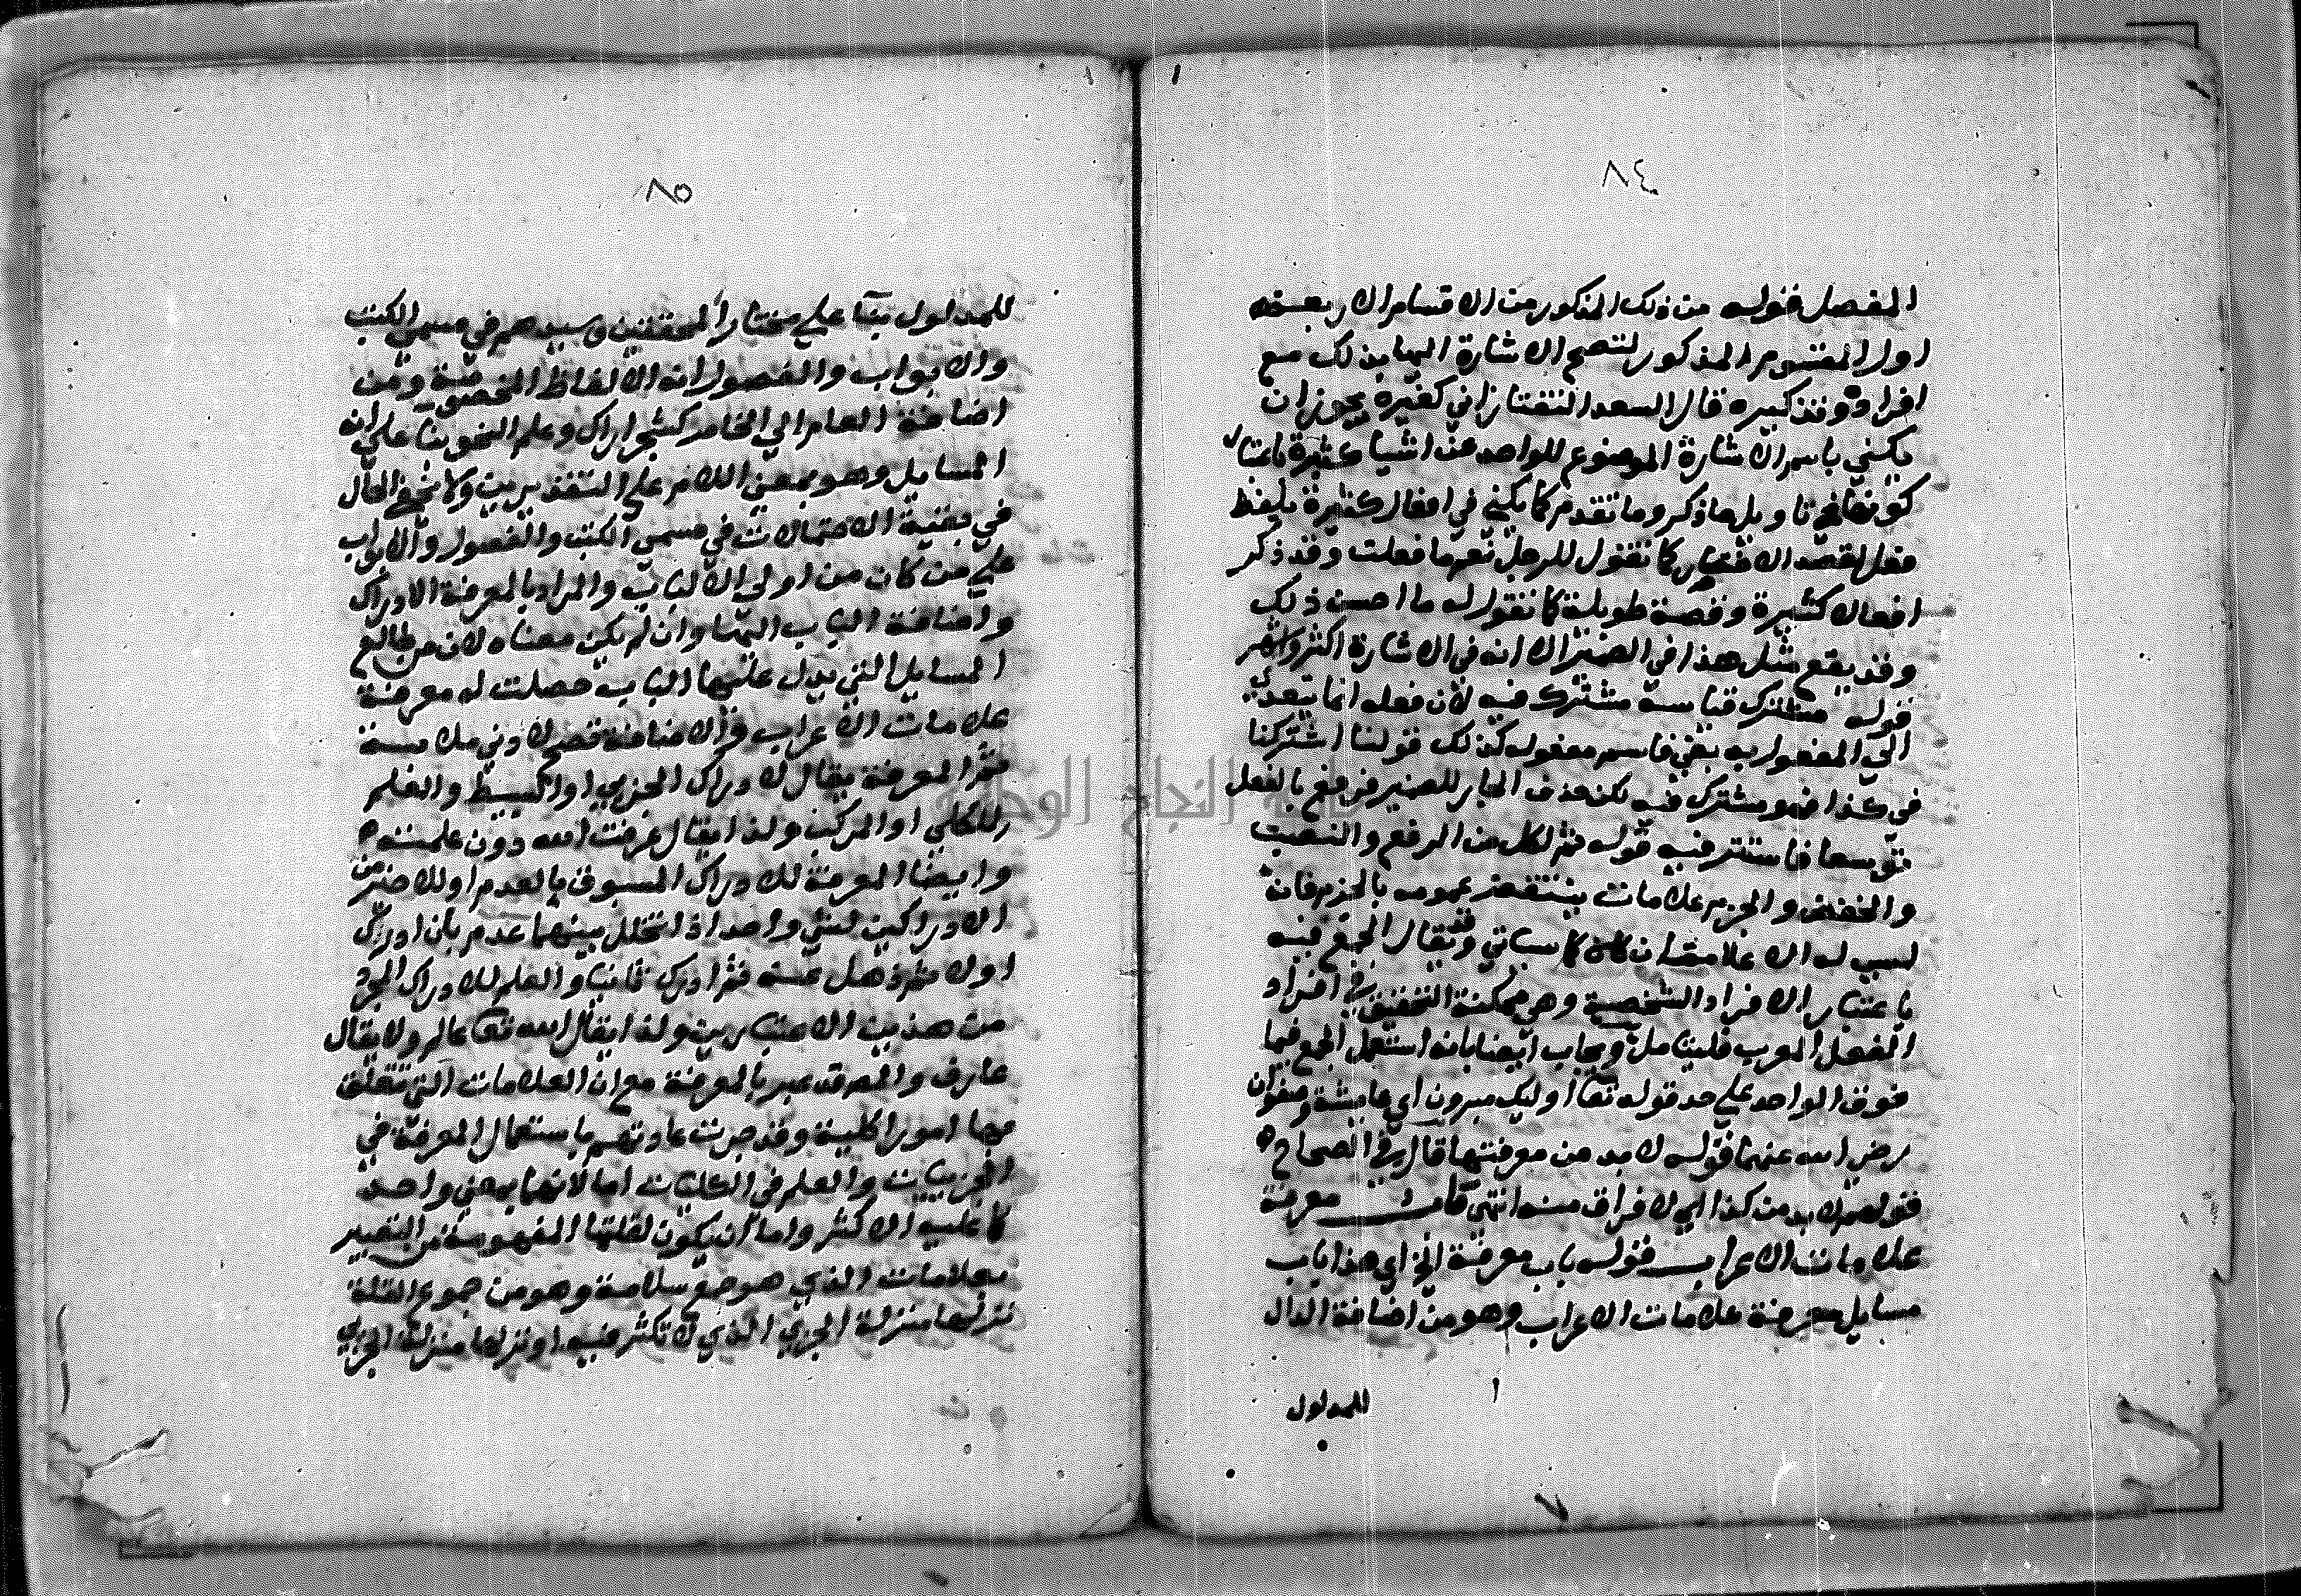 ٨٤
المفصل قوله من ذلك المذكور من الاقسام الاربعة
او المقسوم المذكور لتصح الاشارة اليها بذلك مع
افراده وتذكيره قال السعد التفتازاني كغيره يجوز ان
يكني باسم الاشارة الموضوع للواحد عن اشيا كثيرة باعتبار
كونها في تاويل ما ذكر وما تقدم كما يكني في افعال كثيرة بلفظ
فعل لقصد الاختصار كما تقول للرجل نعم ما فعلت وقد ذكر
افعالا كثيرة وقصة طويلة كما تقول له ما احسن ذلك
وقد يقع مثل هذا في الضمير الا انه في الاشارة اكثر واشهر
قوله مشترك قياسه مشترك فيه لان فعله انما يتعدي
الي المفعول به بفي فاسم مفعوله كذلك قولنا اشتركنا
في كذا فهو مشترك فيه لكن حذف الجار للضمير فرفع بالفعل
توسعا فاستتر فيه قوله ثم لكل من الرفع والنصب
والخفض والجزم علامات ينتقض عمومه بالجزم فانه
ليس له الا علامتان كما سياتي وقد يقال الجمع فيه
باعتبار الافراد الشخصية وهي ممكنة التحقيق في افراد
الفعل المعرب فليتامل ويجاب ايضا بانه استعمل الجمع فيما
فوق الواحد علي حد قوله تعا اوليك مبرون اي عايشة وصفوان
رضي الله عنهما قوله لابد من معرفتها قال في الصحاح
قولهم لابد من كذا اي لا فراق منه انتهي معرفة
علامات الاعراب قوله باب معرفة الخ اي هذا باب
مسايل معرفة علامات الاعراب وهو من اضافة الدال
للمدلول
٨٥
للمدلول بنآ علي مختار المحققين وسيدهم في مسمي الكتب
والابواب والفصول انه الالفاظ المخصوصة ومن
اضافة العام الي الخاص كشجر اراك وعلم النحو بنا علي انه
المسايل وهو بمعني اللام علي التقديرين ولا يخفي الحال
في بقية الاحتمالات في مسمي الكتب والفصول والابواب
علي من كان من اولي الالباب والمراد بالمعرفة الادراك
واضافة الباب اليها وان لم يكن معناه لان من طالع
المسايل التي يدل عليها الباب حصلت له معرفة
علامات الاعراب فالاضافة تصح لادني ملابسة
ثم المعرفة يقال لادراك الجزيي او البسيط والعلم
للكلي او المركب ولذا يقال عرفت الله دون علمته
وايضا المعرفة للادراك المسبوق بالعدم او للاخير من
الادراكين لشي واحد اذا تخلل بينهما عدم بان ادرك
اولا ثم ذهل عنه ثم ادرك ثانيا والعلم للادراك المجرد
من هذين الاعتبارين ولذا يقال الله تعا عالم ولا يقال
عارف والمص قد عبر بالمعرفة مع ان العلامات التي تتعلق
بها امور كلية وقد جرت عادتهم باستعمال المعرفة في
الجزييات والعلم في الكليات اما لانهما بمعني واحد
كما عليه الاكثر واما ان يكون لقلتها المفهومة من التعبير
بعلامات الذي هو جمع سلامة وهو من جموع القلة
نزلها منزلة الجزيي الذي لا تكثر فيه او نزلها منزلة الجزيي